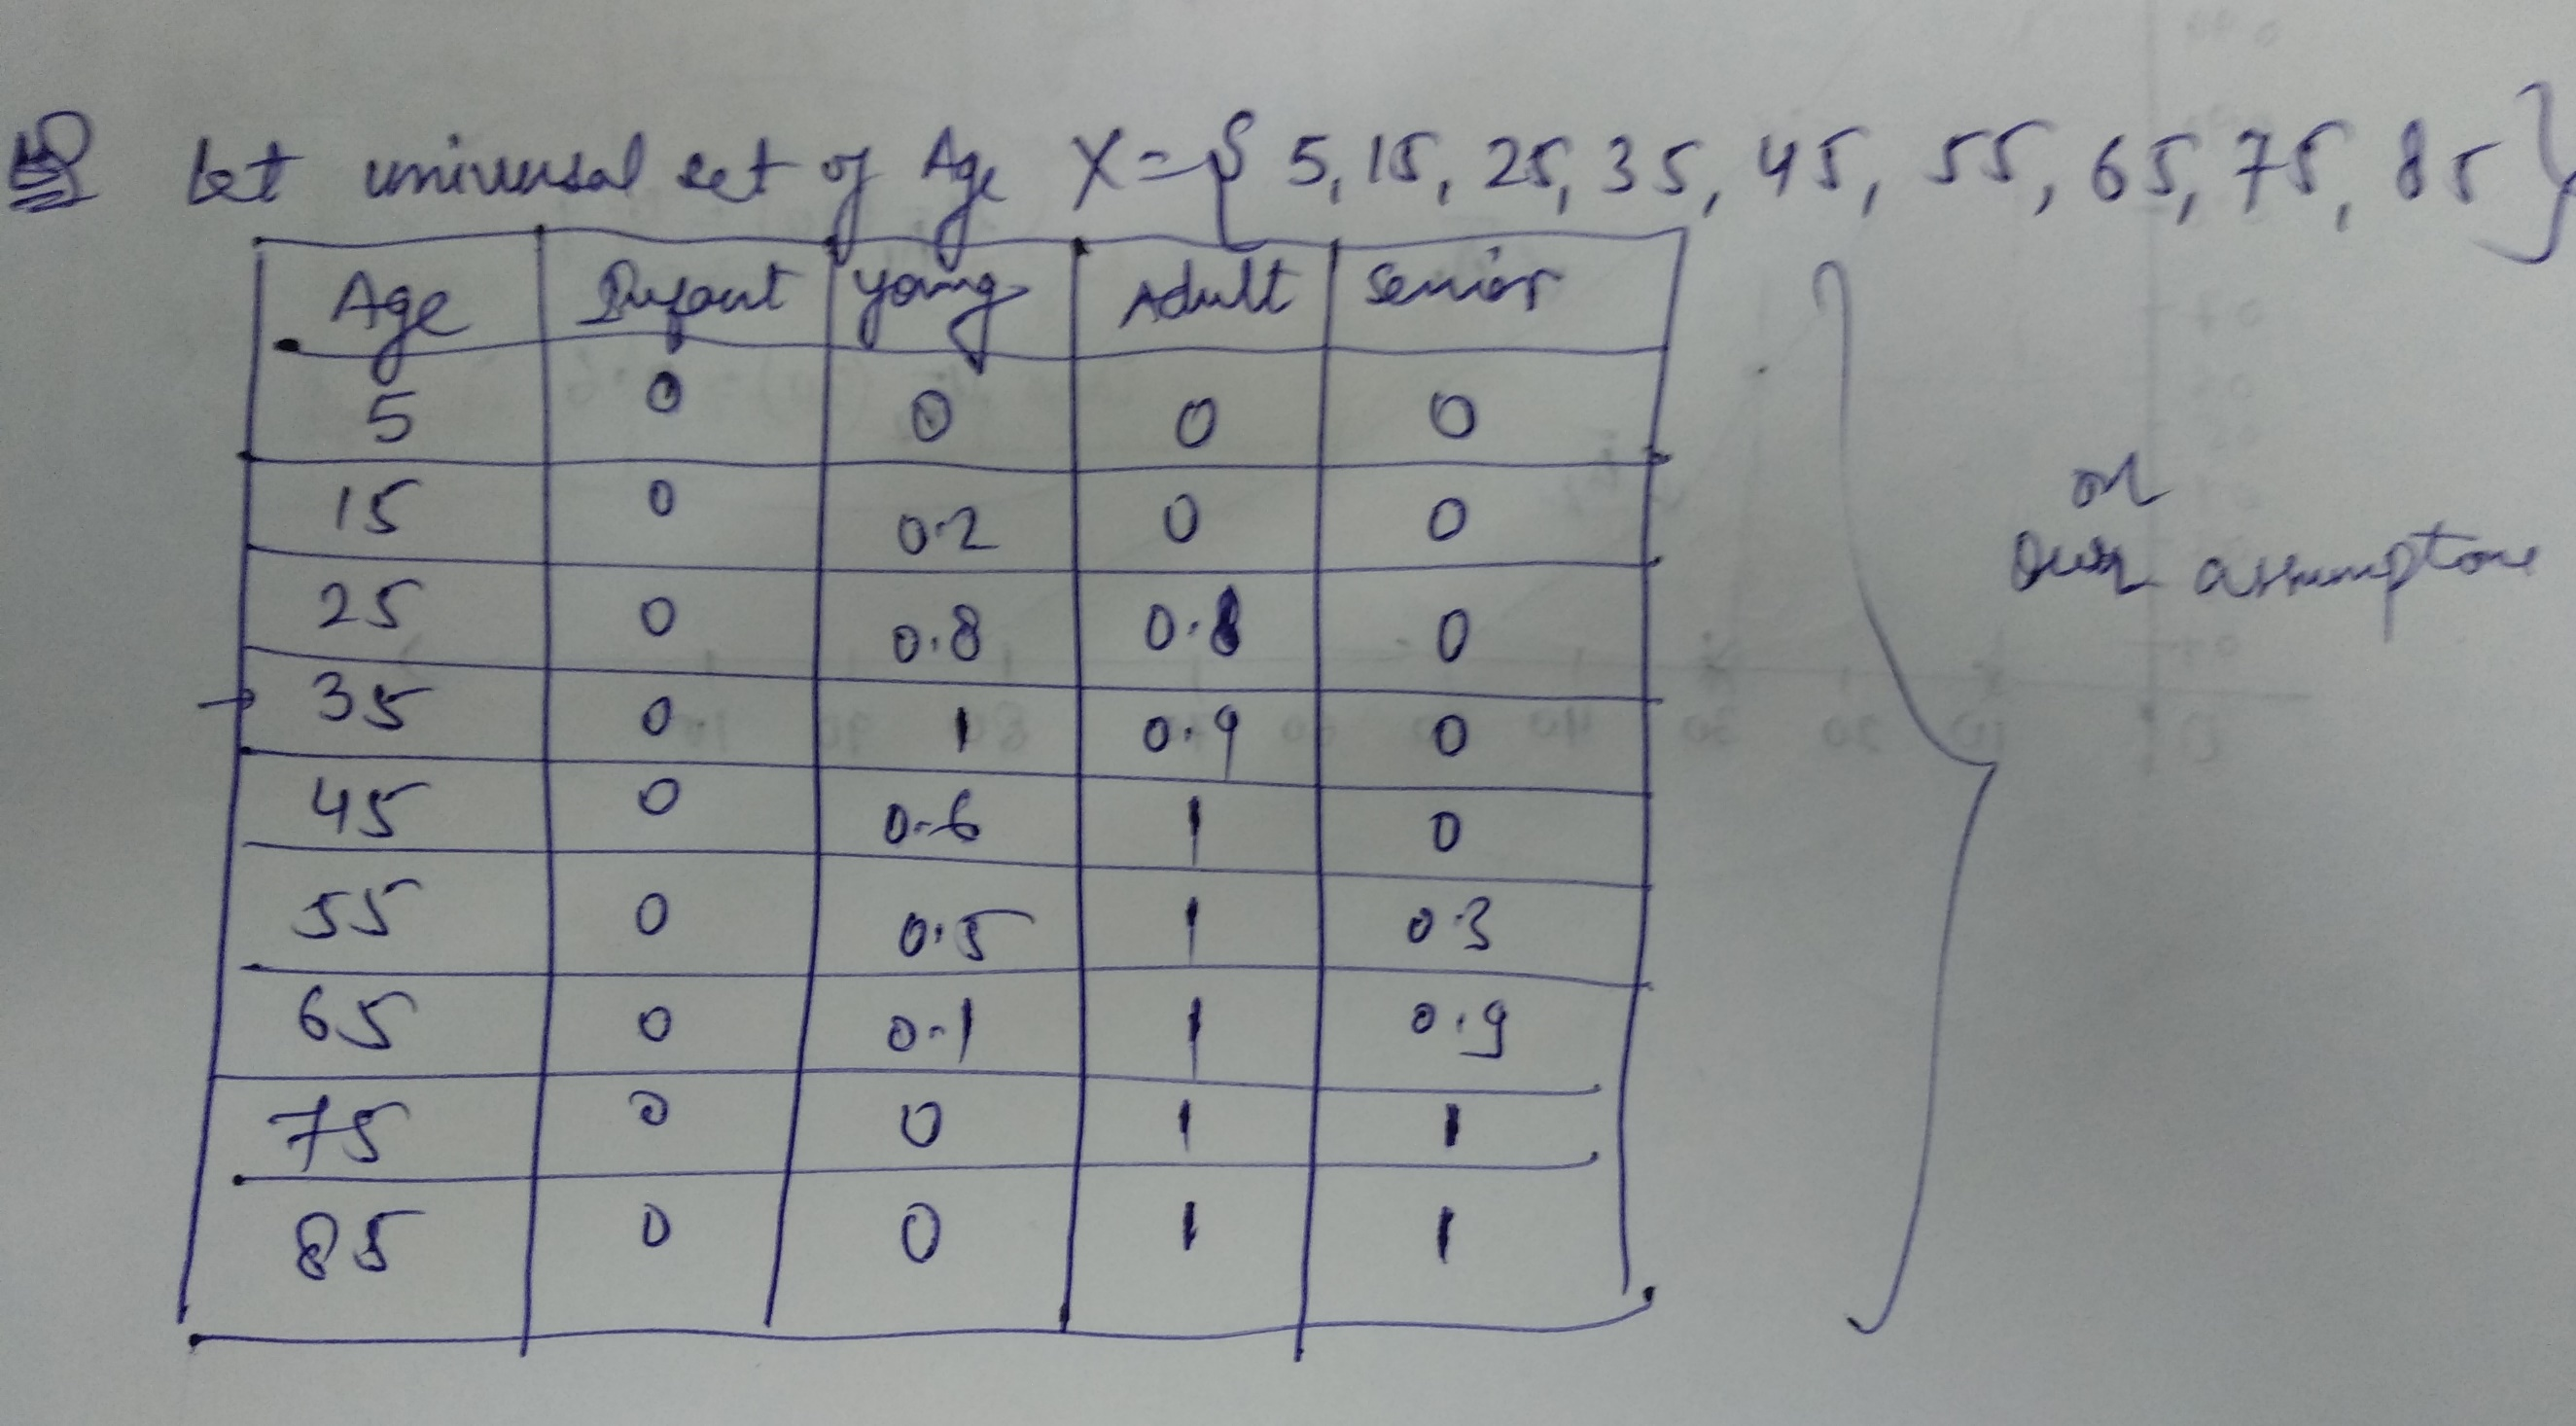 Let universal set of Age X = { 5, 15, 25, 35, 45, 55, 65, 75, 85 }
Age Infant young Adult Senior
5 0 0 0 0
15 0 0.2 0 0
25 0 0.8 0.8 0
35 0 1 0.9 0
45 0 0.6 1 0
55 0 0.5 1 0.3
65 0 0.1 1 0.9
75 0 0 1 1
85 0 0 1 1
our assumptions